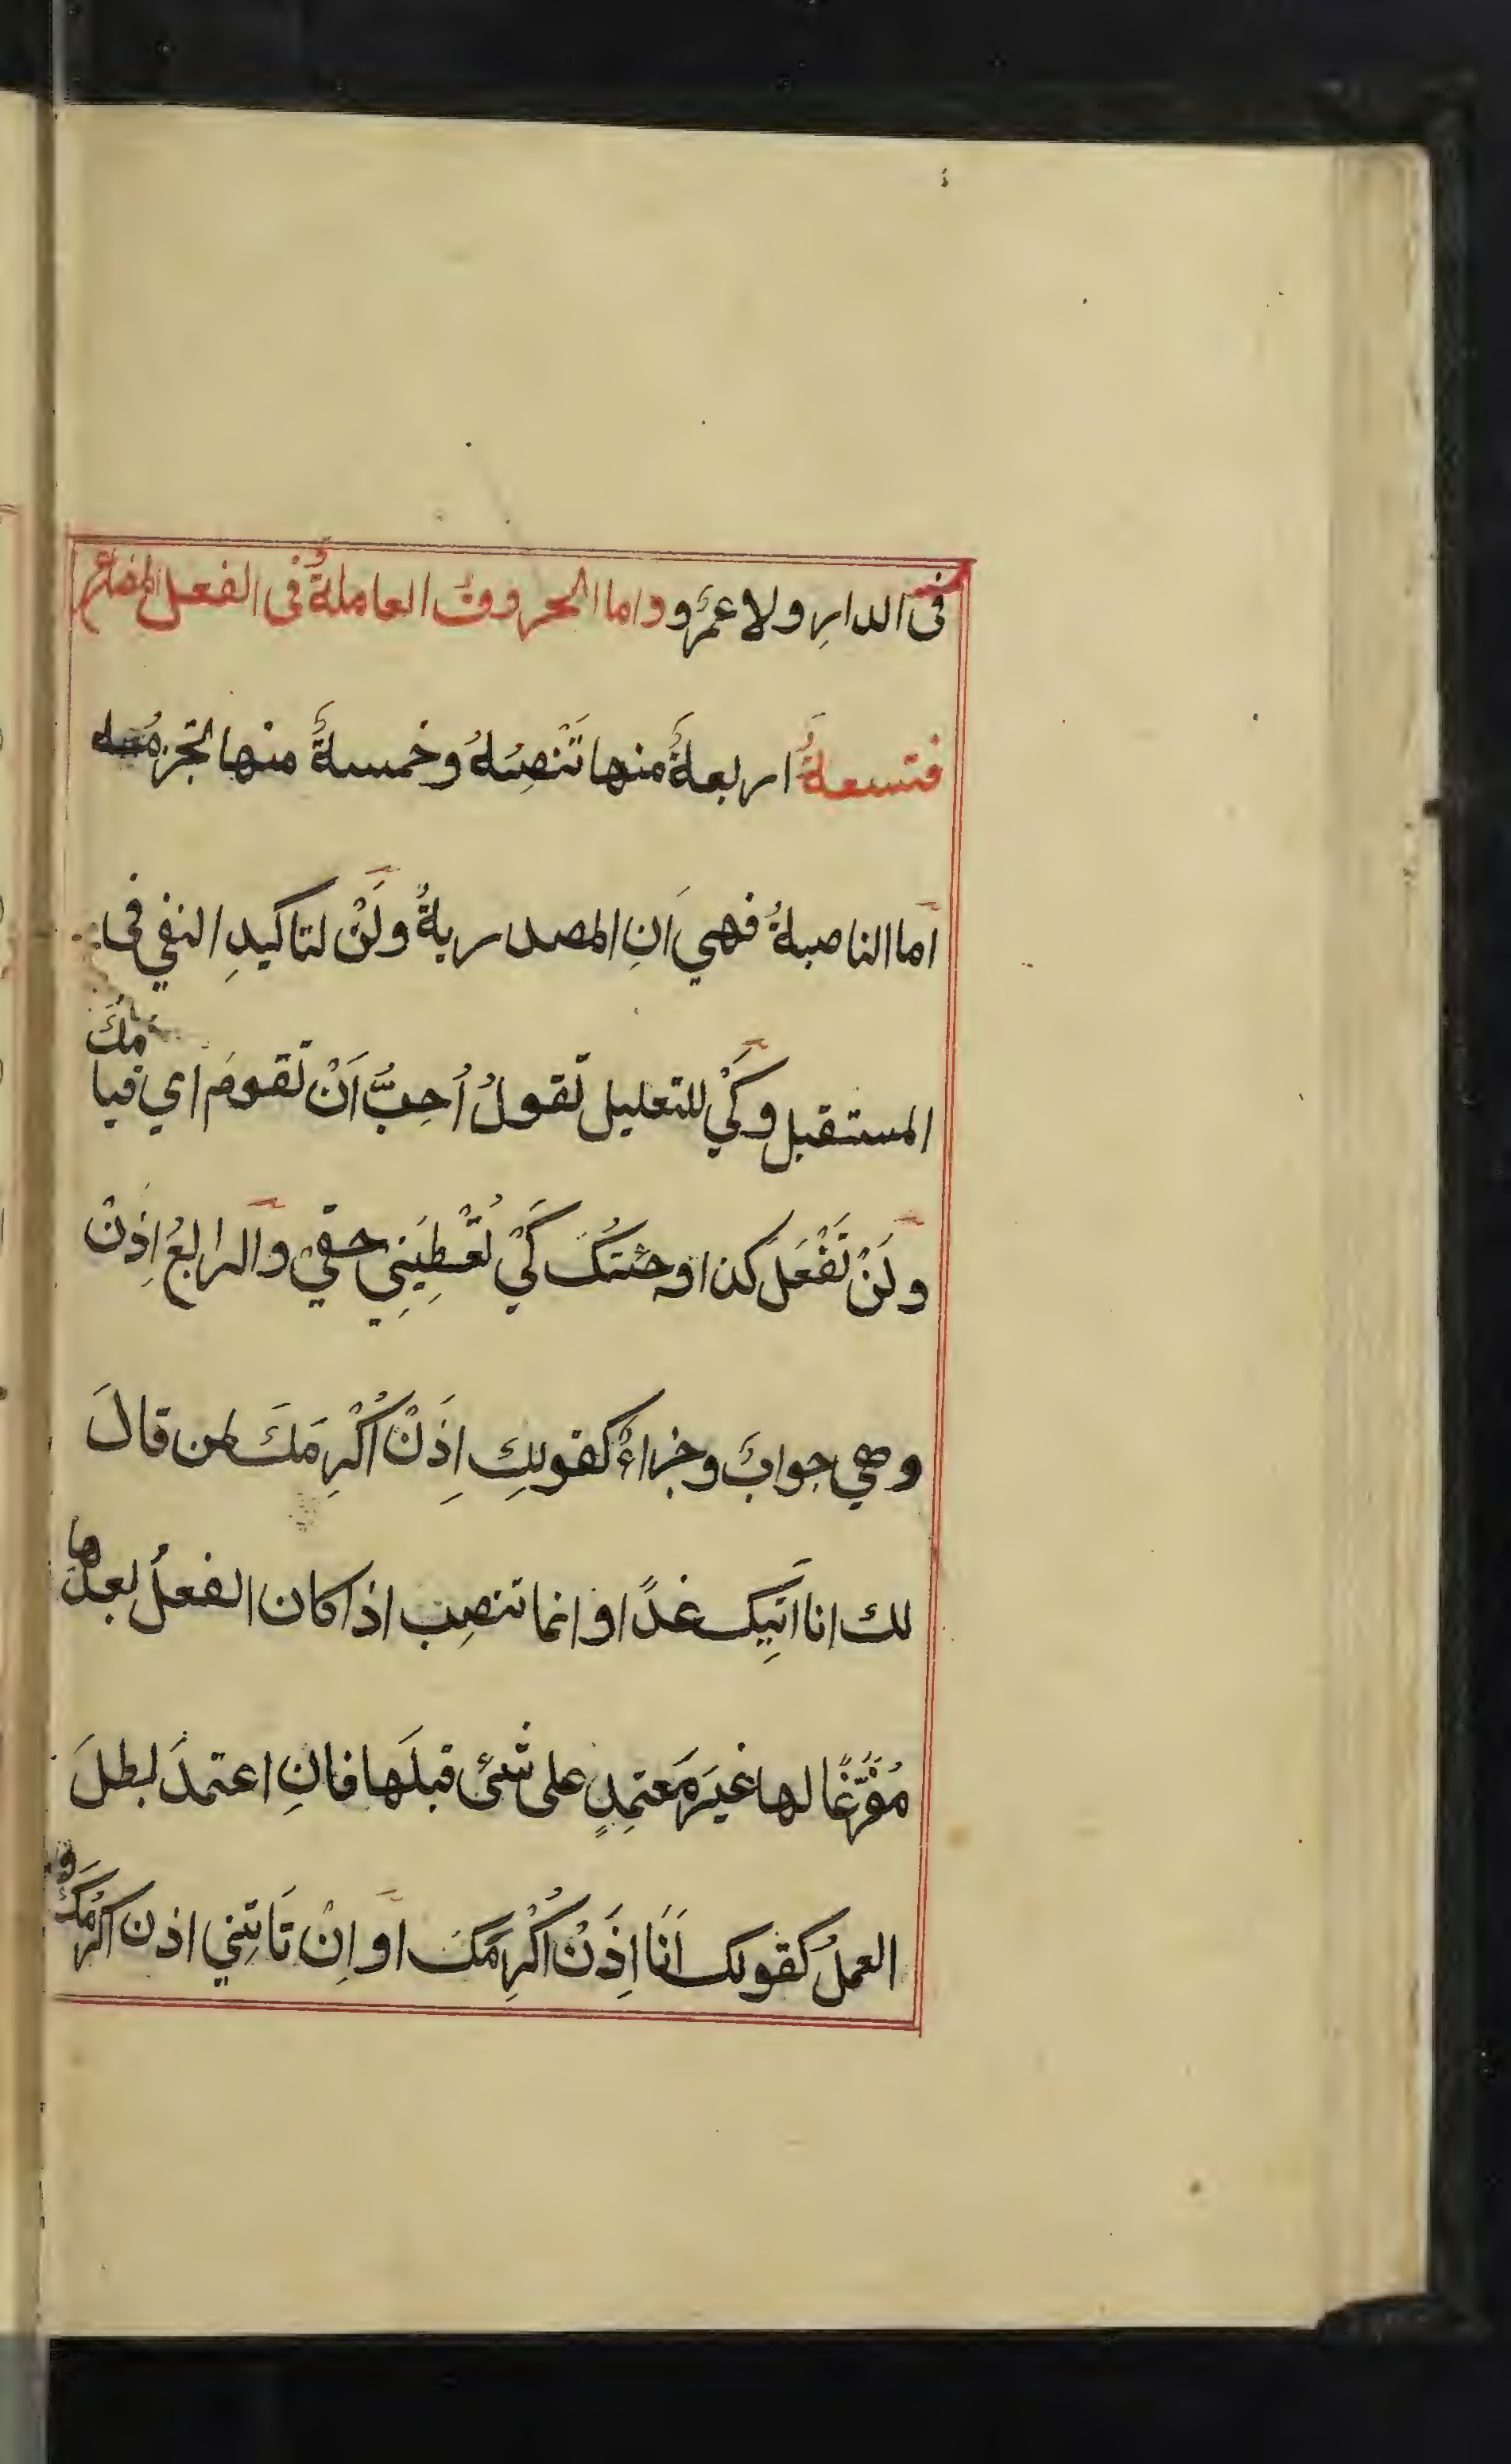 فى الدارِ ولا عمرٌو واما الحروفُ العاملةُ فى الفعل المضارع
فتسعةٌ اربعةٌ منها تَنْصِبُهُ وخمسةٌ منها تجزمُه
اما الناصبةُ فهي اَنِ المصدريةُ ولَنْ لتاكيدِ النفي فى
المستقبل وكَيْ للتعليل تقولُ اُحِبُّ اَنْ تقومَ اي قيامَكَ
ولَنْ تَفْعَلَ كذا وجئتُكَ كَيْ تُعْطِيَنِي حقي والرابعُ اِذَنْ
وهي جوابٌ وجزاءٌ كقولِكَ اِذَنْ اُكْرِمَكَ لمن قالَ
لك انا اٰتِيكَ غدًا وانما تنصِب اذا كان الفعلُ بعدَها
مُفَرَّغًا لها غيرَ معتمِدٍ على شئ قبلَها فانِ اعتمدَ بطلَ
العملُ كقولك اَنَا اِذَنْ اُكْرِمُكَ او اِنْ تَاتِنِي اذن اكرمْكَ و